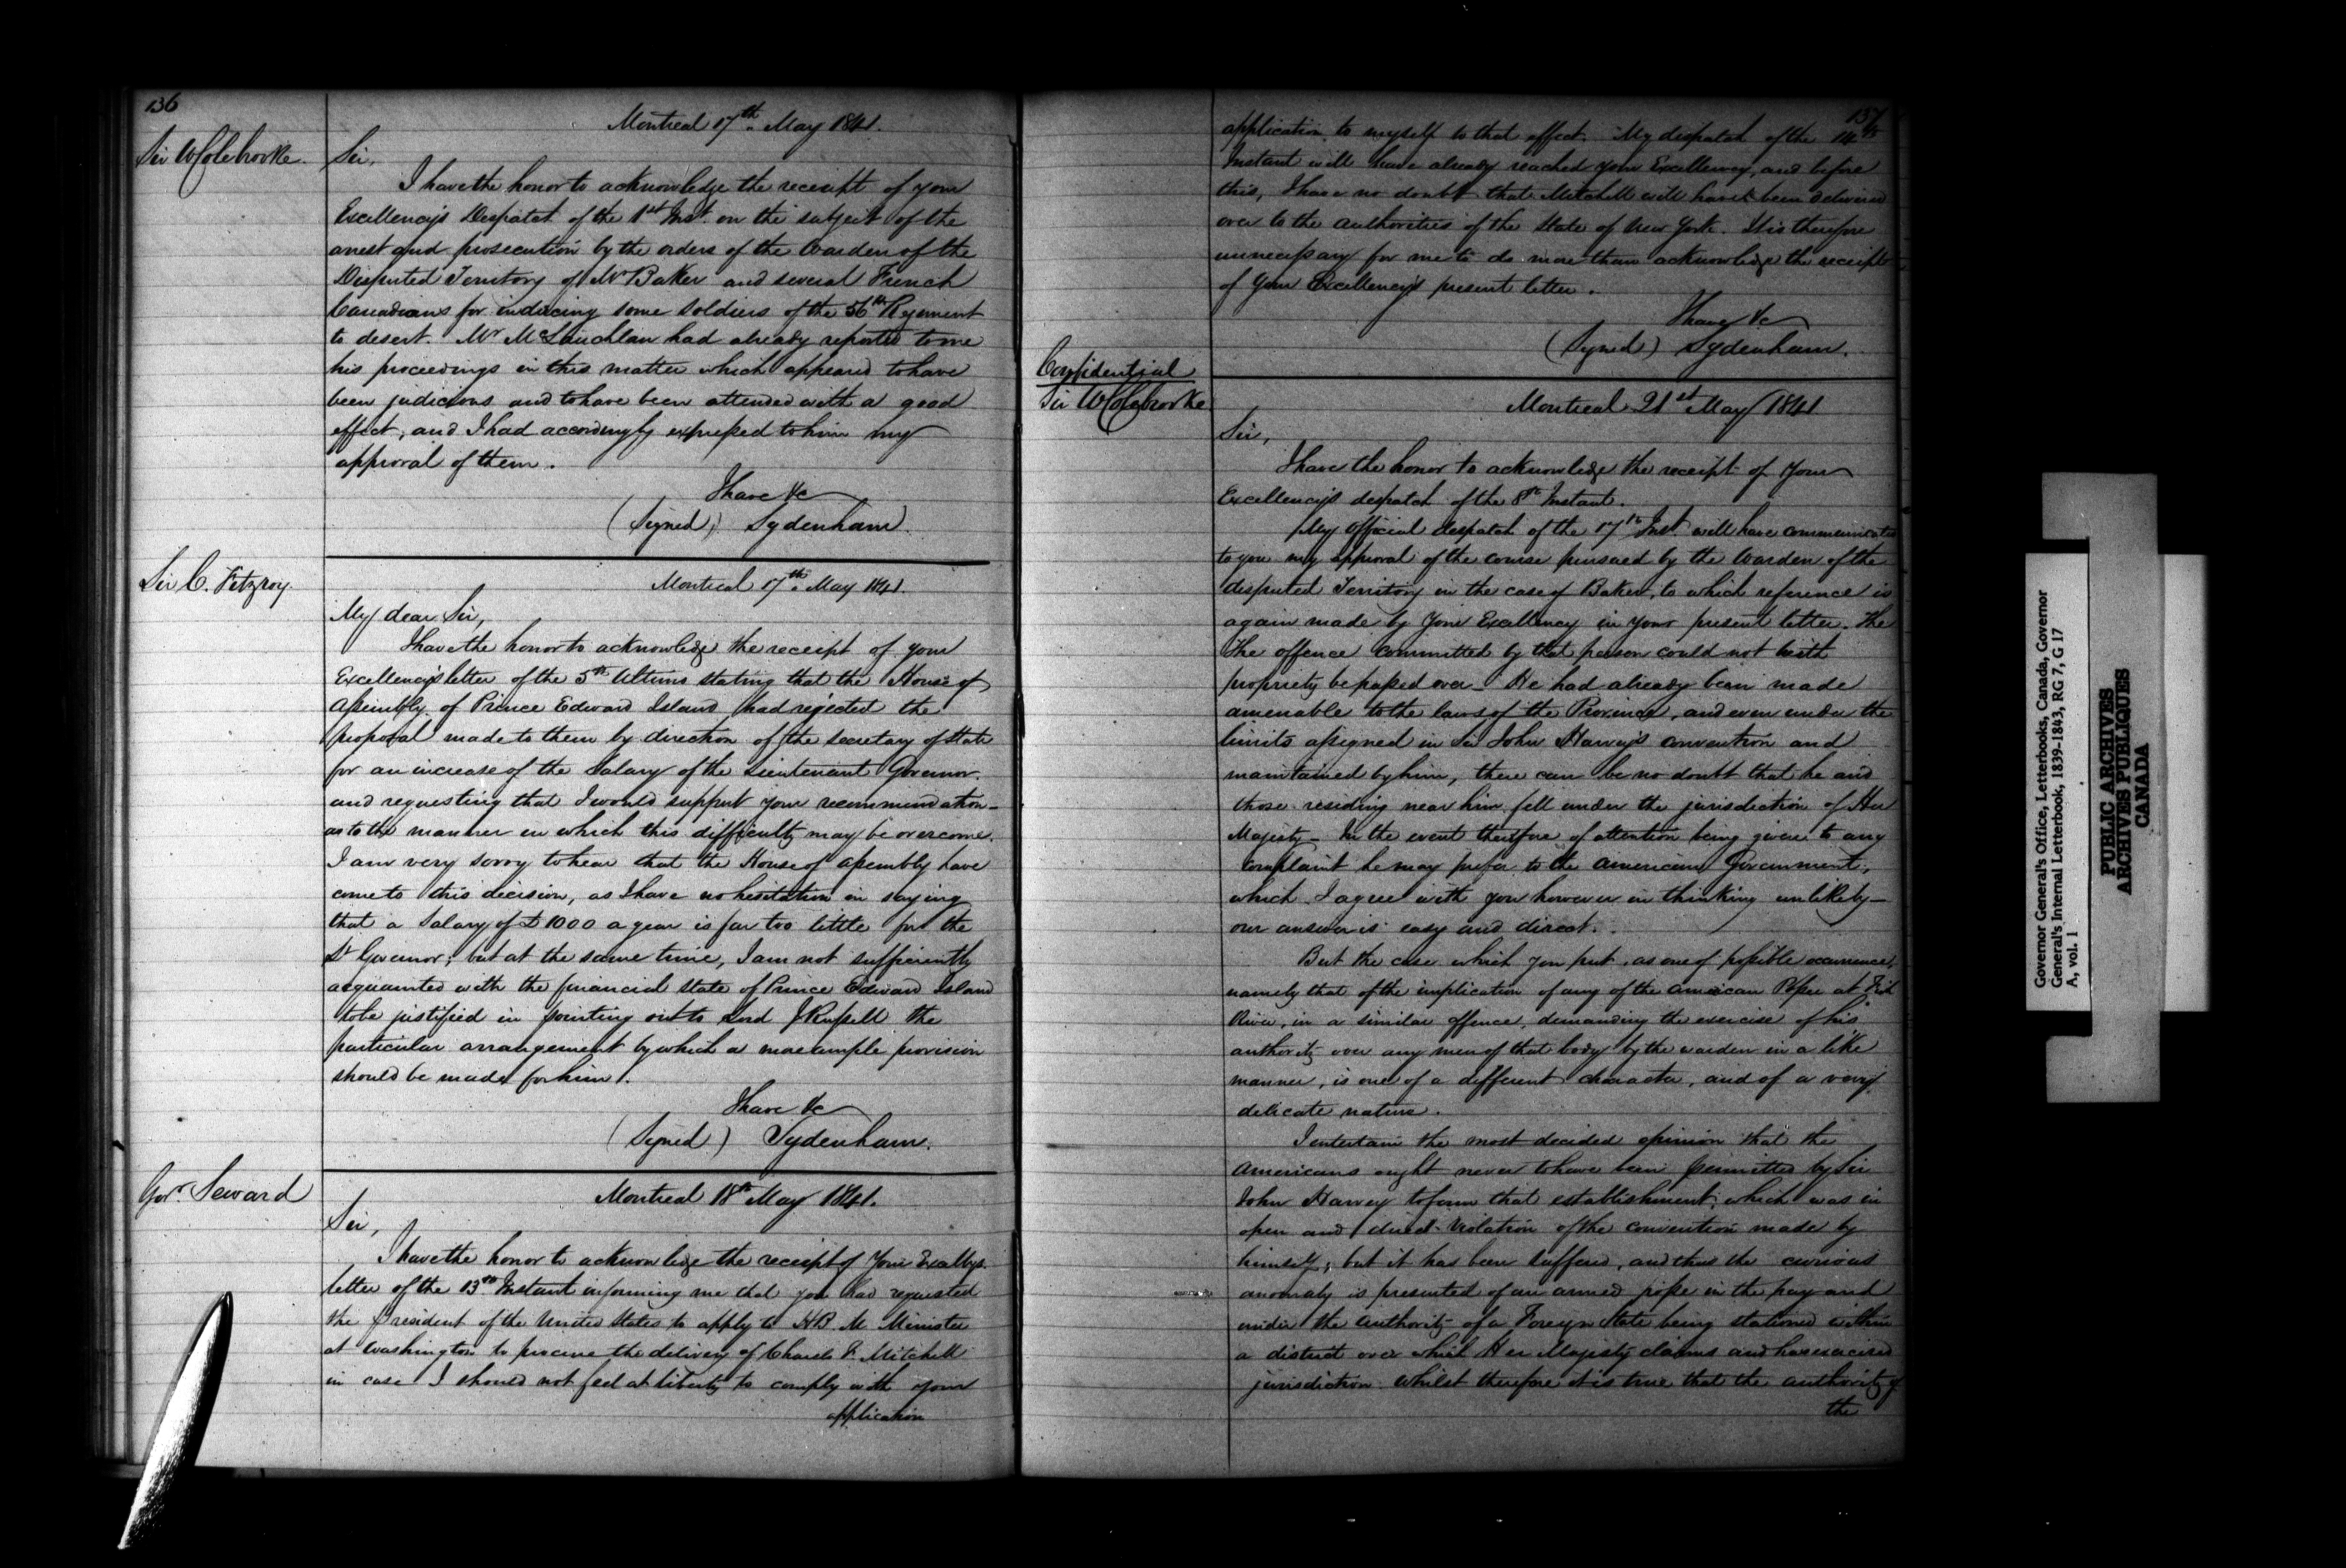 136
Montreal 17th May 1841.
Sir W Colebrooke.
Sir,
I have the honor to acknowledge the receipt of your
Excellency's Despatch of the 1st Inst. on the subject of the
arrest and prosecution by the orders of the Warden of the
Disputed Territory of Mr Baker and several French
Canadians for inducing some soldiers of the 56th Regiment
to desert. Mr McLauchlan had already reported to me
his proceedings in this matter which appeared to have
been judicious and to have been attended with a good
effect, and I had accordingly expressed to him my
approval of them.
I have &c
(Signed) Sydenham.
Sir C. Fitzroy.
Montreal 17th May 1841.
My dear Sir,
I have the honor to acknowledge the receipt of your
Excellency's letter of the 5th Ultimo stating that the House of
Assembly of Prince Edward Island had rejected the
proposal made to them by direction of the Secretary of State
for an increase of the Salary of the Lieutenant Governor.
and requesting that I would support your recommendation
as to the manner in which this difficulty may be overcome.
I am very sorry to hear that the House of Assembly have
come to this decision, as I have no hesitation in saying
that a Salary of £1000 a year is far too little for the
Lt Governor; but at the same time, I am not sufficiently
acquainted with the financial state of Prince Edward Island
to be justified in pointing out to Lord J Russell the
particular arrangement by which a more ample provision
should be made for him.
I have &c
(Signed) Sydenham.
Govr. Seward
Montreal 18th May 1841.
Sir,
I have the honor to acknowledge the receipt of Your Excellys
letter of the 13th Instant informing me that you had requested
the President of the United States to apply to HB. M. Minister
at Washington to procure the delivery of Charles F. Mitchell
in case I should not feel at liberty to comply with your
application
137
application to myself to that effect. My despatch of the 14th
Instant will have already reached your Excellency, and before
this, I have no doubt that Mitchell will have been delivered
over to the authorities of the State of New York. It is therefore
unnecessary for me to do more than acknowledge the receipt
of Your Excellency's present letter.
I have &c
(Signed) Sydenham.
Confidential
Sir W Colebrooke
Montreal 21st May 1841
Sir,
I have the honor to acknowledge the receipt of Your
Excellency's despatch of the 8th Instant.
My official despatch of the 17th Inst. will have communicated
to you my approval of the course pursued by the Warden of the
disputed Territory in the case of Baker, to which reference is
again made by Your Excellency in your present letter. The
The offence committed by that person could not with
propriety be passed over. He had already been made
amenable to the laws of the Province, and even under the
limits assigned in Sir John Harvey's convention and
maintained by him, there can be no doubt that he and
those residing near him fell under the jurisdiction of Her
Majesty. In the event therefore of attention being given to any
complaint he may prefer to the American Government,
which I agree with you however in thinking unlikely
our answer is easy and direct.
But the case which you put, as one of possible occurrence,
namely that of the implication of any of the American Posse at Fish
River, in a similar offence, demanding the exercise of his
authority over any men of that body by the warden in a like
manner, is one of a different character, and of a very
delicate nature.
I entertain the most decided opinion that the
Americans ought never to have been permitted by Sir
John Harvey to form that establishment, which was in
open and direct violation of the convention made by
himself; but it has been suffered, and thus the curious
anomaly is presented of an armed posse in the pay and
under the authority of a Foreign State being stationed within
a district over which Her Majesty claims and has exercised
jurisdiction. Whilst therefore it is true that the authority of
the
Governor General's Office, Letterbooks, Canada, Governor
General's Internal Letterbook, 1839-1843, RG 7, G 17
A, vol. 1
PUBLIC ARCHIVES
ARCHIVES PUBLIQUES
CANADA